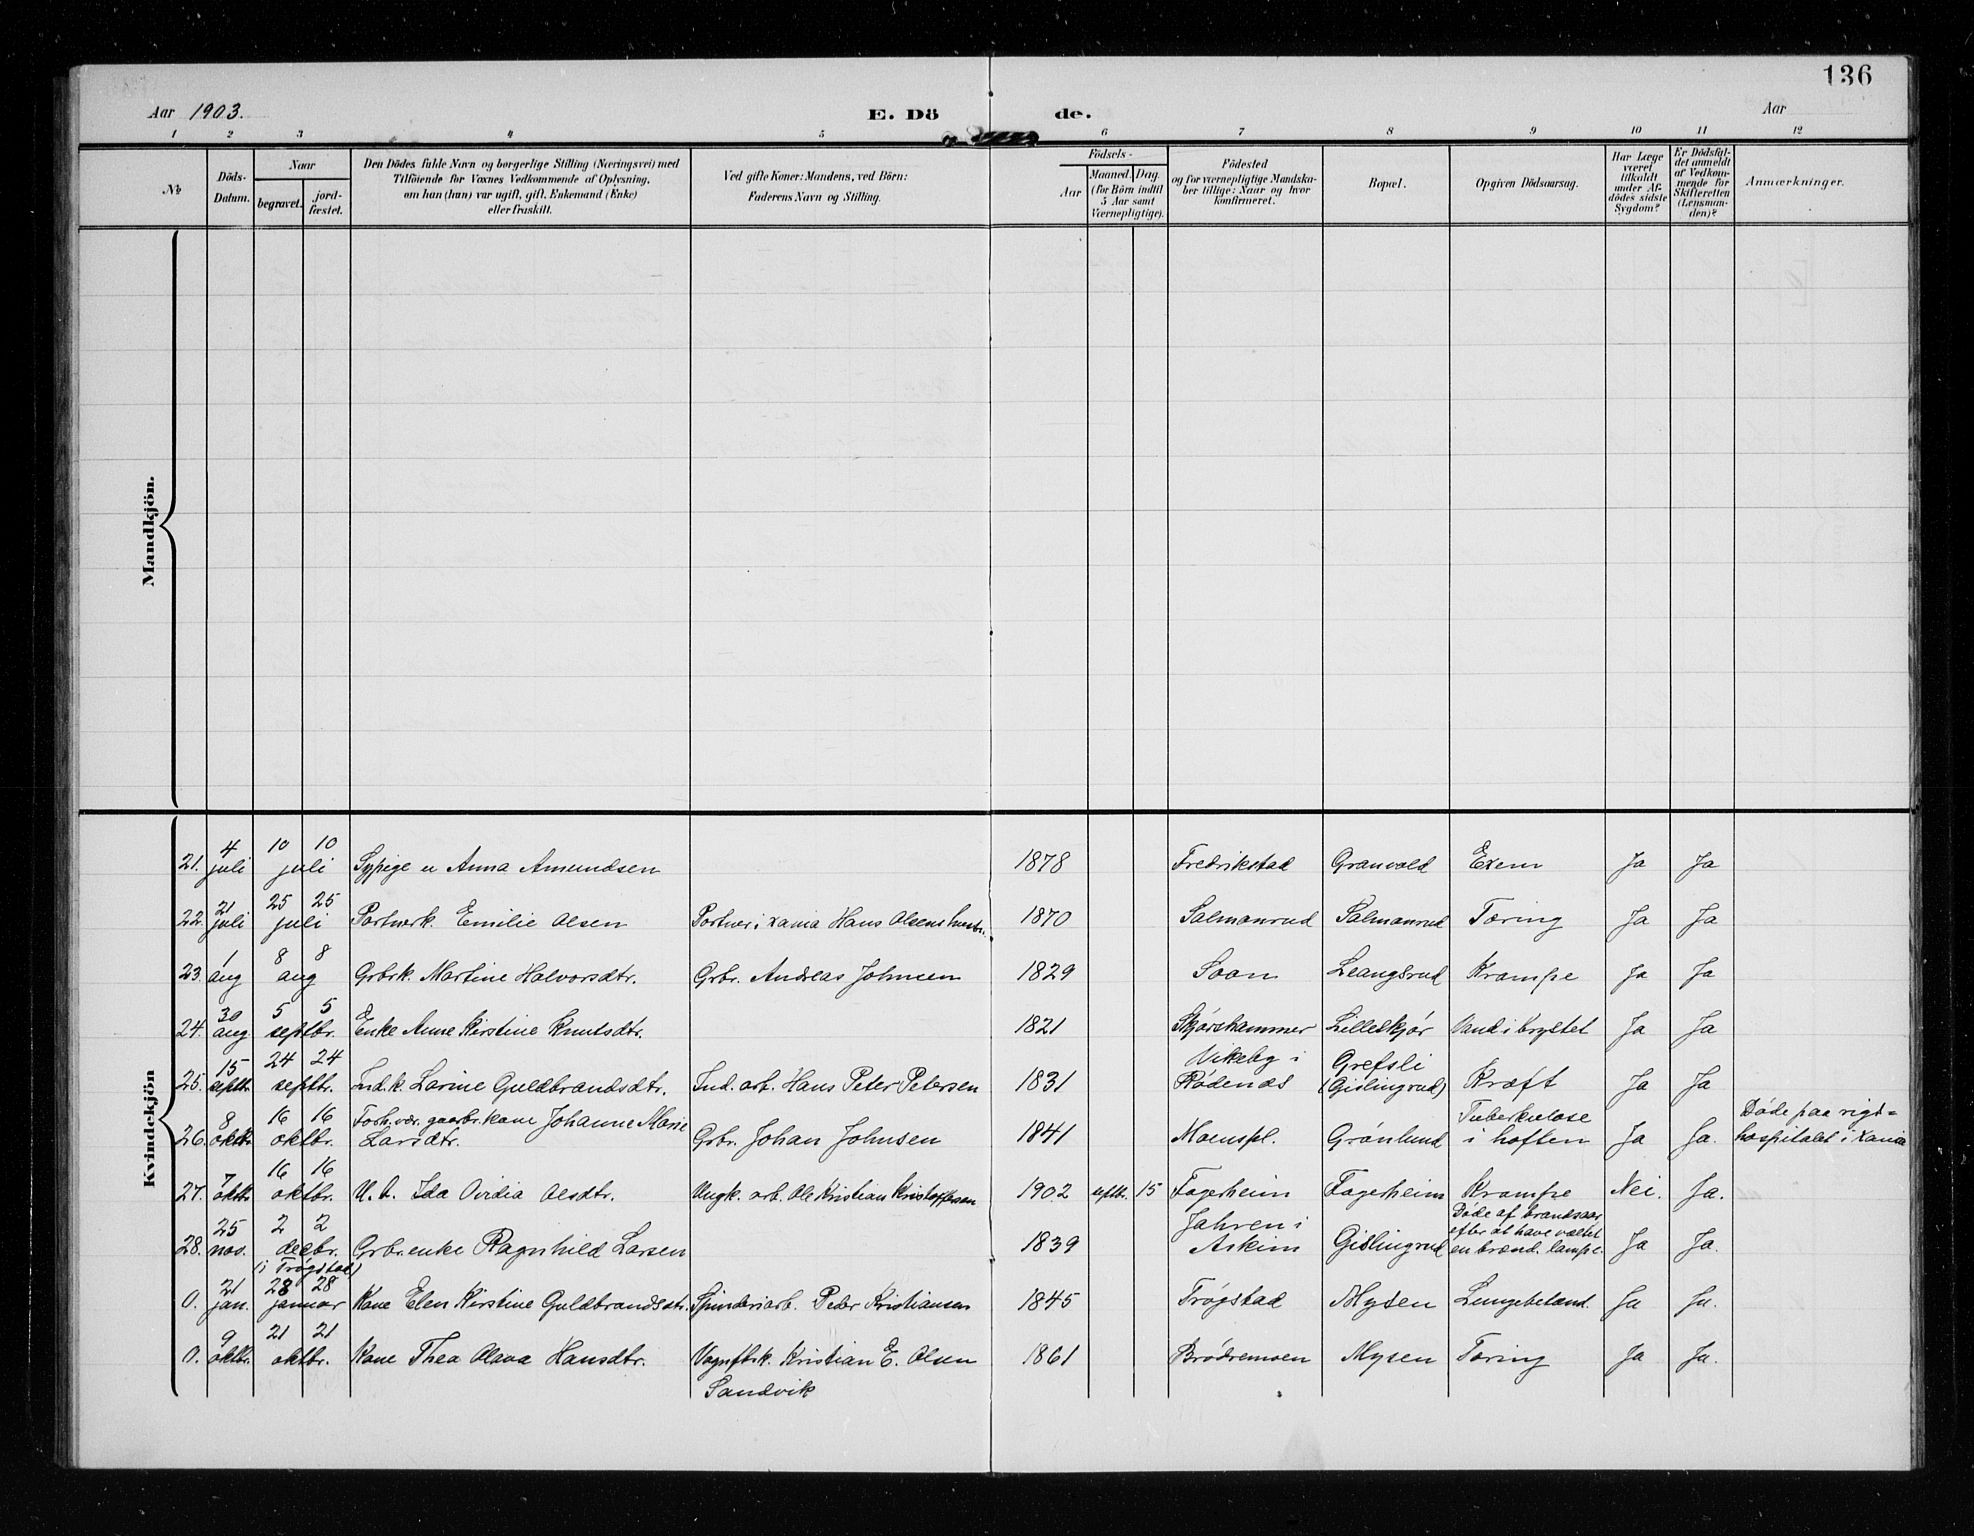 136
Aar 1903. E. Dö de. Aar
1 2 3 4 5 6 7 8 9 10 11 12
No
Döds-Datum.
Naar
begravet.
jord-fæstet.
Den Dödes fulde Navn og borgerlige Stilling (Næringsvei) med
Tilföiende for Voxnes Vedkommende af Oplysning,
om han (hun) var ugift, gift, Enkemand (Enke)
eller fraskilt.
Ved gifte Koner: Mandens, ved Börn:
Faderens Navn og Stilling.
Födsels-
Aar
Maaned. Dag.
(for Börn indtil
5 Aar samt
Værnepligtige).
Födested
og for værnepligtige Mandska-
ber tillige: Naar og hvor
konfirmeret.
Bopæl.
Opgiven Dödsaarsag.
Har Læge
været
tilkaldt
under Af-
dödes sidste
Sygdom?
Er Dödsfal-
det anmeldt
af Vedkom-
mende for
Skifteretten
(Lensman-
den)?
Anmærkninger.
Mandkjön.
Kvindekjön
4 10 10
21. juli juli Sypige u Anna Amundsen 1878 Fredrikstad Granvold Exem Ja Ja
21 25 25
22. juli juli Portnerk. Emilie Olsen Portner i Xania Hans Olsens hustr. 1870 Salmanrud Salmanrud Tæring Ja Ja
1 8 8
23. aug aug Grbrk. Martine Halvorsdtr. Grbr. Andreas Johnsen 1829 Soon Leangsrud Krampe Ja Ja
30 5 5
24. aug septbr. Enke Anne Kirstine Knutsdtr. 1821 Skjørshammer Lilleskjør Vand i brystet Ja Ja
15 24 24 Vikeby i Grefsli
25. septbr. septbr. Ind.k. Larine Guldbrandsdtr. Ind. arb. Hans Peter Petersen 1831 Rødenæs (Gislingrud) Kræft Ja Ja
8 16 16 Forh.vær. gaarbr. kone Johanne Marie Tuberkulose Døde paa rigs=
26. oktbr. oktbr. Larsdtr. Grbr. Johan Johnsen 1841 Moenspl. Grønlund i hoften Ja Ja. hospitalet i Xania
7 16 16
27. oktbr. oktbr. U. b. Ida Ovidia Olsdtr. Ungk. arb. Ole Kristian Kristoffersen 1902 septbr. 15 Fagerheim Fagerheim Krampe Nei. Ja.
25 2 2 Jahren i Døde af brandsaar
efter at have væltet
28. nov. decbr. Grbr. enke Ragnhild Larsen 1839 Askim Gislingrud en brænd. lampe. Ja Ja.
(i Trøgstad)
21 28 28
0. jan. januar Kone Elen Kirstine Guldbrandsdtr. Spinderiarb. Peder Kristiansen 1845 Trøgstad Mysen Lungebetænd. Ja Ja.
9 21 21
0. oktbr. oktbr. Kone Thea Olava Hansdtr. Vognfbrk. Kristian E. Olsen 1861 Brødremoen Mysen Tæring Ja Ja.
Sandvik